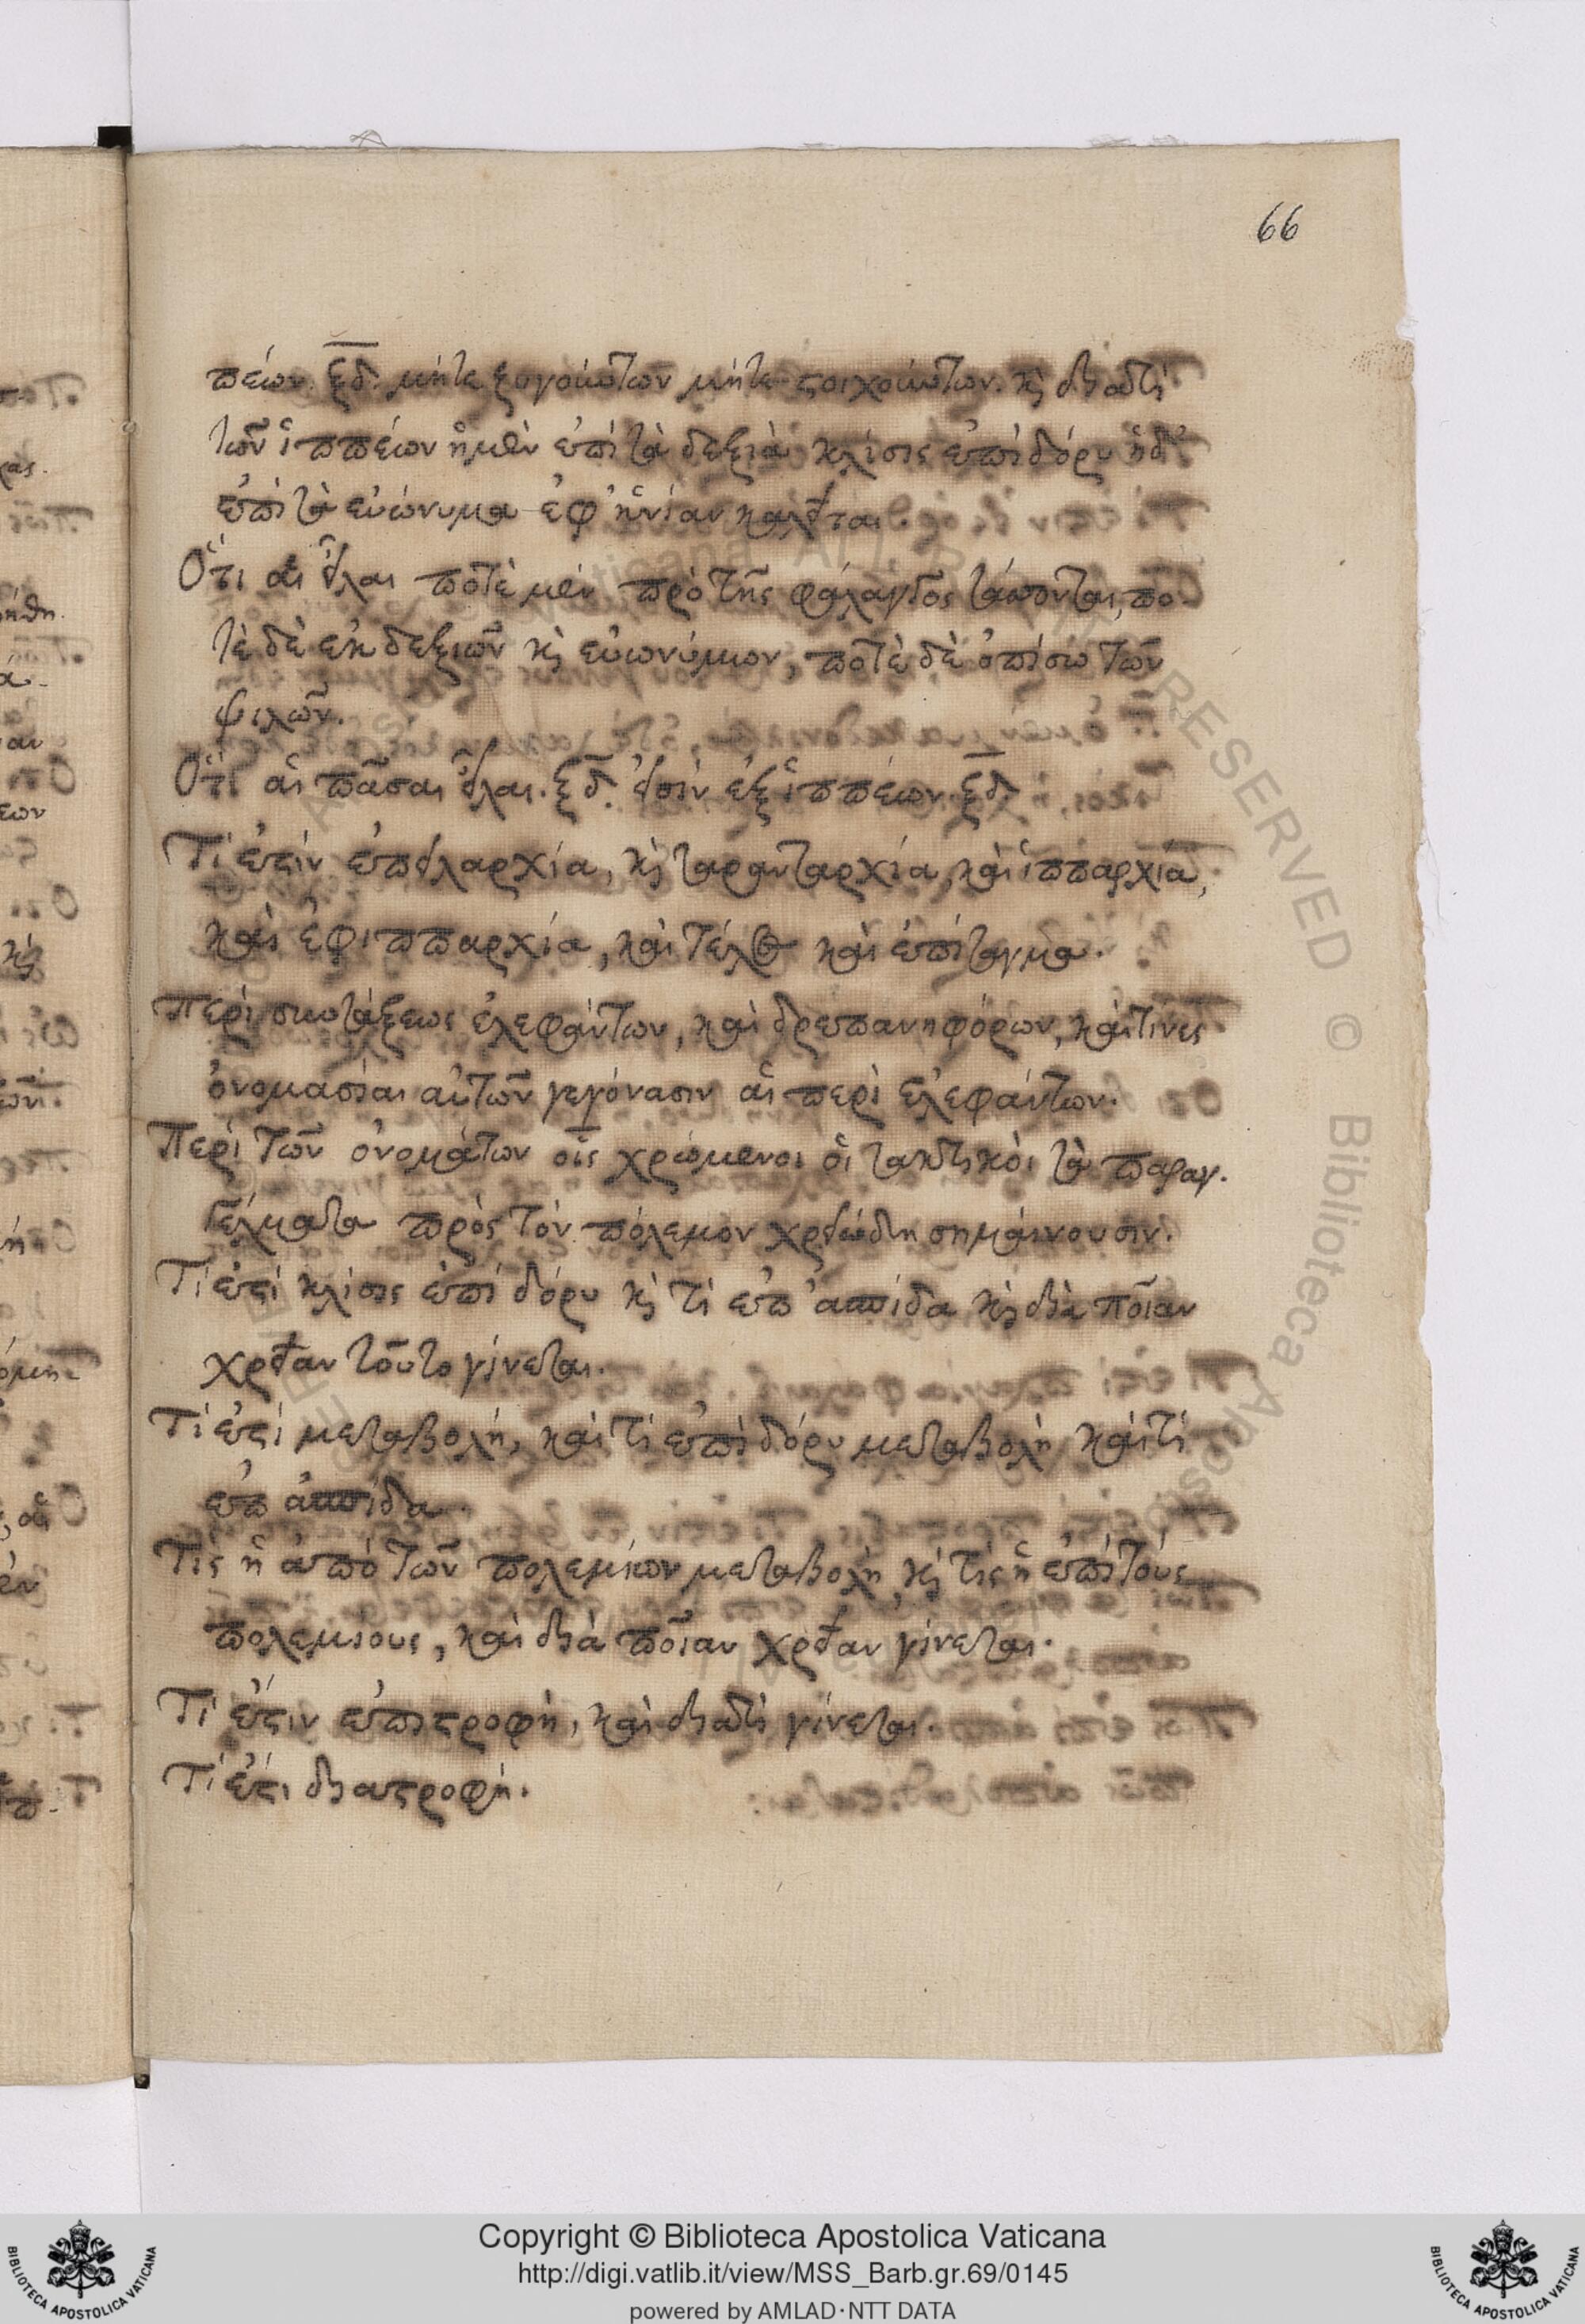 66
πέων. ξδ. μήτε ζυγούντων μήτε στοιχούντων. καὶ διατί
τῶν ἱππέων ἡ μὲν ἐπὶ τὰ δεξιὰ κλίσις ἐπὶ δόρυ ἡ δ'
ἐπὶ τὰ εὐώνυμα ἐφ' ἡνίαν καλεῖται.
Ὅτι αἱ ἶλαι ποτὲ μὲν πρὸ τῆς φάλαγγος τάττονται, πο
τὲ δὲ ἐκ δεξιῶν καὶ εὐωνύμων, ποτὲ δὲ ὀπίσω τῶν
ψιλῶν.
Ὅτι αἱ πᾶσαι ἶλαι. ξδ. εἰσὶν ἐξ ἱππέων ξδ
Τί ἐστιν ἐπιλαρχία, καὶ ταρανταρχία, καὶ ἱππαρχία,
καὶ ἐφιππαρχία, καὶ τέλος καὶ ἐπίταγμα.
Περὶ συντάξεως ἐλεφάντων, καὶ δρεπανηφόρων, καὶ τίνες
ὀνομασίαι αὐτῶν γεγόνασιν αἱ περὶ ἐλεφάντων.
Περὶ τῶν ὀνομάτων οἷς χρώμενοι οἱ τακτικοὶ τὰ παραγ.
γέλματα πρὸς τὸν πόλεμον χρειώδη σημαίνουσιν.
Τί ἐστι κλίσις ἐπὶ δόρυ καὶ τί ἐπ' ἀσπίδα καὶ διὰ ποῖαν
χρείαν τοῦτο γίνεται.
Τί ἐστι μεταβολή, καὶ τί ἐπὶ δόρυ μεταβολὴ καὶ τί
ἐπ ἀσπίδα.
Τίς ἡ ἀπὸ τῶν πολεμίων μεταβολὴ καὶ τίς ἡ ἐπὶ τοὺς
πολεμίους, καὶ διὰ ποῖαν χρείαν γίνεται.
Τί ἐστιν ἐπιστροφή, καὶ διατί γίνεται.
Τί ἐστι διαστροφή.
Copyright © Biblioteca Apostolica Vaticana
http://digi.vatlib.it/view/MSS_Barb.gr.69/0145
powered by AMLAD·NTT DATA
BIBLIOTECA APOSTOLICA VATICANA
BIBLIOTECA APOSTOLICA VATICANA